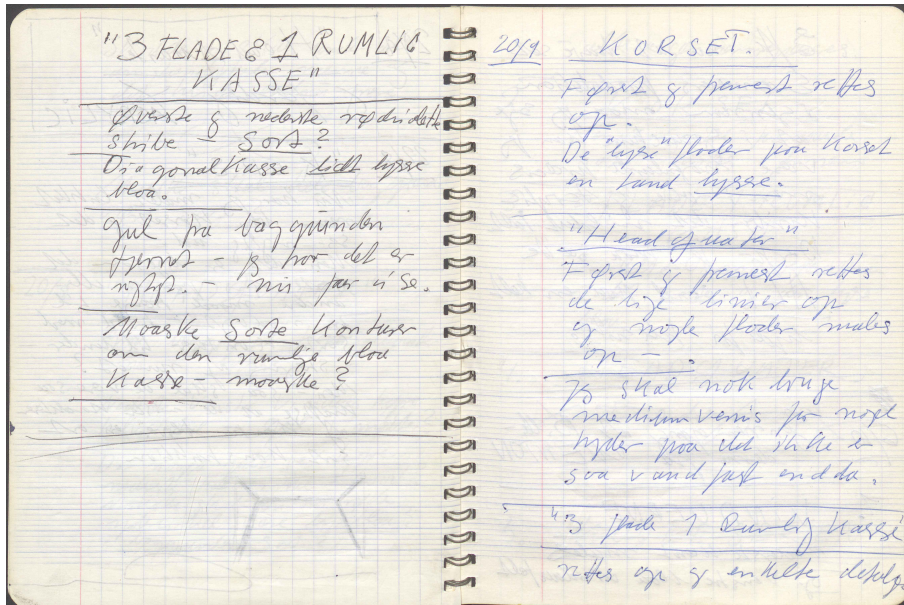 "3 FLADE & 1 RUMLIG
KASSE"
Øverste & nederste
stribe – Sort?
Diagonal Kasse lidt lysere
blaa.
gul fra baggrunden
fjernet – jeg tror det er
rigtigt. – nu faar vi se.
Maaske Sorte Konturer
om den rumlige blaa
Kasse – maaske?
20/9 KORSET.
Først og fremest rettes
op.
De "lyse" flader paa Korset
en tand lysere.
"Head of water"
Først og fremest rettes
de lige linier op
og nogle flader males
op – .
jeg skal nok bruge
medium venis for noget
tyder paa det ikke er
saa vand fast endda.
"3 flade 1 Rumlig Kasse
rettes op og enkelte